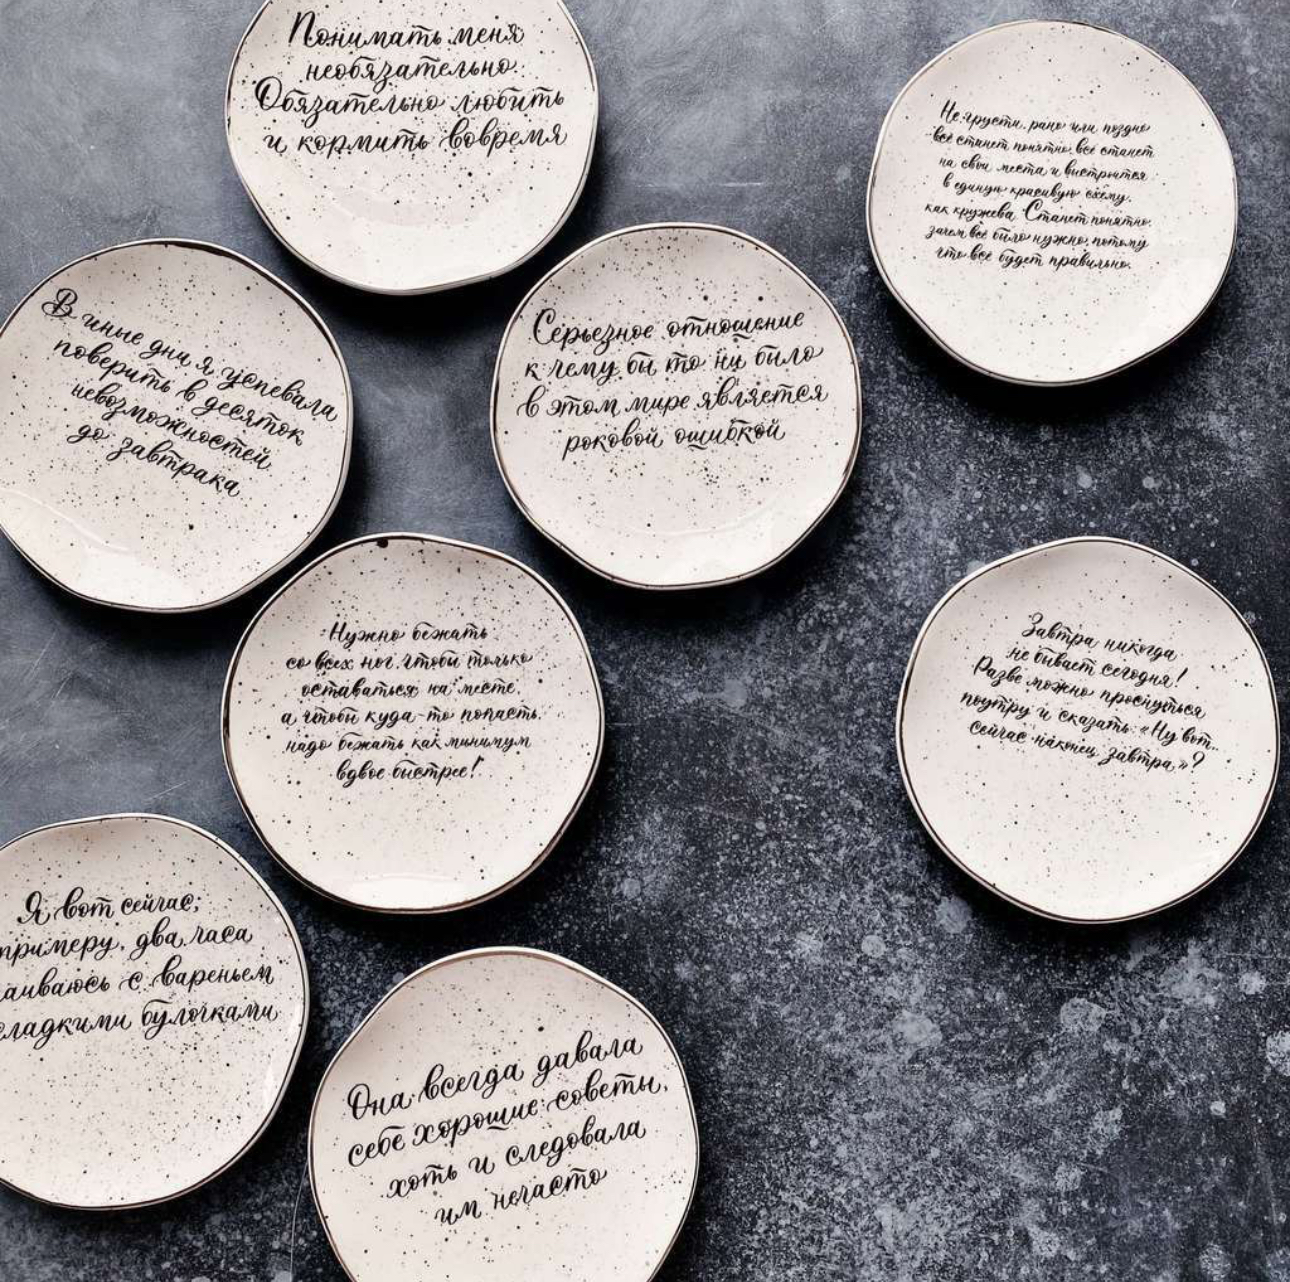 Понимать меня
необязательно.
Обязательно любить
и кормить вовремя
Не грусти, рано или поздно
всё станет понятно, всё станет
на свои места и выстроится
в единую красивую схему,
как кружева. Станет понятно,
зачем всё было нужно, потому
что всё будет правильно.
В иные дни я успевала
поверить в десяток
невозможностей
до завтрака
Серьезное отношение
к чему бы то ни было
в этом мире является
роковой ошибкой
Нужно бежать
со всех ног, чтобы только
оставаться на месте,
а чтобы куда-то попасть,
надо бежать как минимум
вдвое быстрее!
Завтра никогда
не бывает сегодня!
Разве можно проснуться
поутру и сказать: «Ну вот..
сейчас наконец завтра»?
Я вот сейчас,
примеру, два часа
аиваюсь с вареньем
сладкими булочками
Она всегда давала
себе хорошие советы,
хоть и следовала
им нечасто